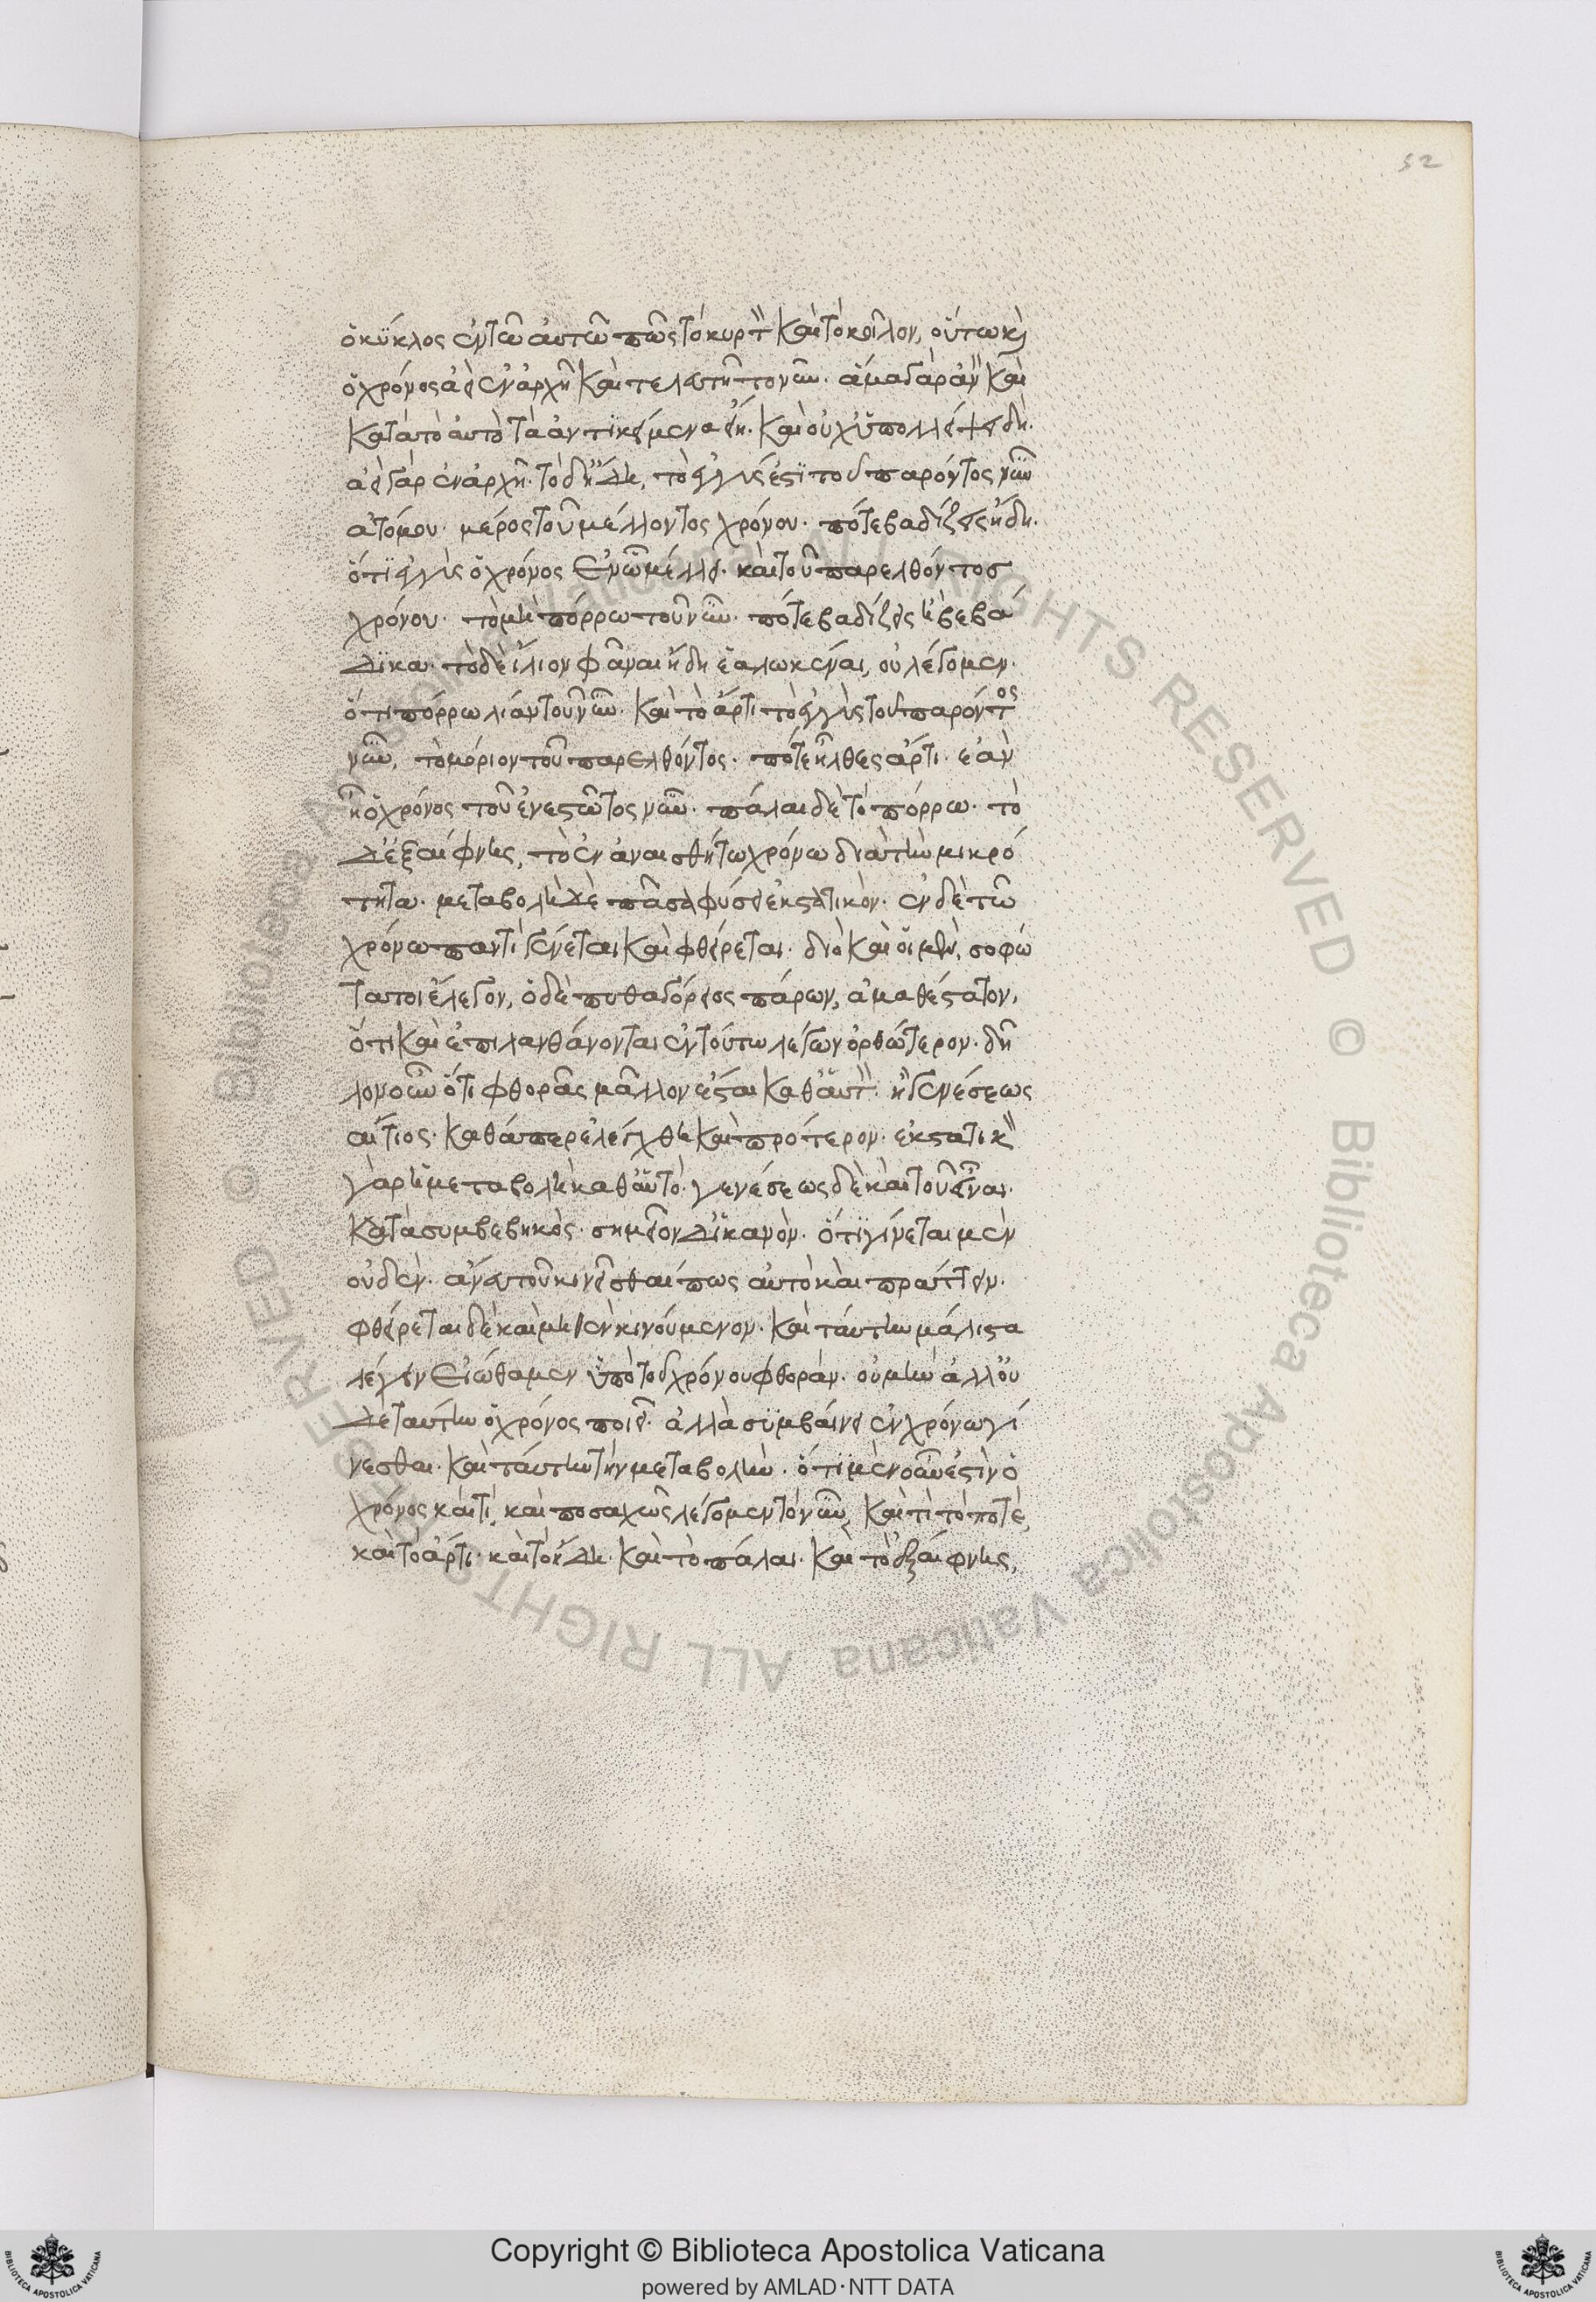 52
ὁ κύκλος ἐν τῶ αὐτῶ πῶς τὸ κυρτὸν καὶ τὸ κοῖλον, οὕτω κὶ
ὁ χρόνος ἀεὶ ἐν ἀρχῆ καὶ τελευτῆ τὸ νῦν. ἅμα γὰρ ἂν καὶ
κατὰ τὸ αὐτὸ τὰ ἀντικείμενα εἴη. καὶ οὐχ ὑπολλείψει δή.
ἀεὶ γὰρ ἐν ἀρχῆ. τὸ δ' ἤδη, τὸ ἐγγύς ἐστι τοῦ παρόντος νῦν
ἀτόμου. μέρος τοῦ μέλλοντος χρόνου. πότε βαδίζεις ἤδη.
ὅτι ἐγγὺς ὁ χρόνος ἐν ὧ μέλλει. καὶ τοῦ παρελθόντος
χρόνου. τὸ μὴ πόρρω τοῦ νῦν. πότε βαδίζεις ἤ βεβά
δικα. τὸ δὲ ἴλιον φᾶναι ἤδη ἑαλωκέναι, οὐ λέγομεν.
ὅτι πόρρω λίαν τοῦ νῦν. καὶ τὸ ἄρτι τὸ ἐγγὺς τοῦ παρόντος
νῦν, τὸ μόριον τοῦ παρελθόντος. πότε ἦλθες ἄρτι. ἐὰν
ἦ ὁ χρόνος τοῦ ἐνεστῶτος νῦν. πάλαι δὲ τὸ πόρρω. τὸ
δ' ἐξαίφνης, τὸ ἐν ἀναισθήτω χρόνω διὰ τὴν μικρό
τητα. μεταβολὴ δὲ πᾶσα φύσει ἐκστατικόν. ἐν δὲ τῶ
χρόνω παντὶ γίνεται καὶ φθείρεται. διὸ καὶ οἱ μὲν, σοφώ
τατον ἔλεγον, ὁ δὲ πυθαγόρειος πάρων, ἀμαθέστατον,
ὅτι καὶ ἐπιλανθάνονται ἐν τούτω λέγων ὀρθώτερον. δῆ
λον οὖν ὅτι φθορᾶς μᾶλλον ἔσται καθ' αὑτὸν ἢ γενέσεως
αἴτιος. καθάπερ ἐλέχθη καὶ πρότερον. ἐκστατικὸν
γὰρ ἡ μεταβολὴ καθ' αὑτό. γενέσεως δὲ καὶ τοῦ εἶναι.
κατὰ συμβεβηκός. σημεῖον δ' ἱκανὸν. ὅτι γίνεται μὲν
οὐδὲν. ἄνευ τοῦ κινεῖσθαί πως αὐτὸ καὶ πράττειν.
φθείρεται δὲ καὶ μηδὲν κινούμενον. καὶ ταύτην μάλιστα
λέγειν εἰώθαμεν ὑπὸ τοῦ χρόνου φθοράν. οὐ μὴν ἀλλ' οὐ
δὲ ταύτην ὁ χρόνος ποιεῖ. ἀλλὰ συμβαίνει ἐν χρόνω γί
νεσθαι. καὶ ταύτην τὴν μεταβολὴν. ὅτι μὲν οὖν ἐστὶν ὁ
χρόνος καὶ τί, καὶ ποσαχῶς λέγομεν τὸ νῦν, καὶ τί τὸ ποτὲ,
καὶ τὸ ἄρτι. καὶ τὸ ἤδη. καὶ τὸ πάλαι. καὶ τὸ ἐξαίφνης,
Copyright © Biblioteca Apostolica Vaticana
powered by AMLAD·NTT DATA